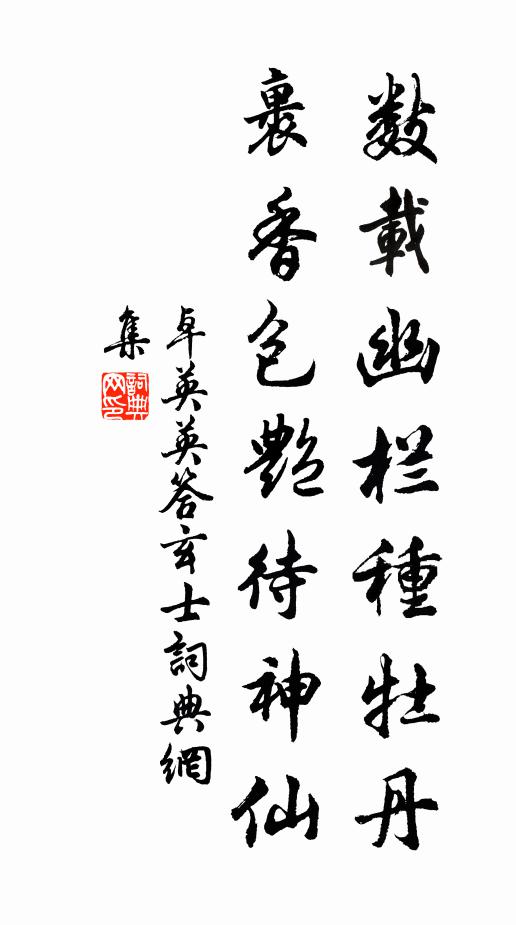 數載幽栏種牡丹
裹香包艷待神仙
卓英英答玄士詞典網
集
詞典
网印